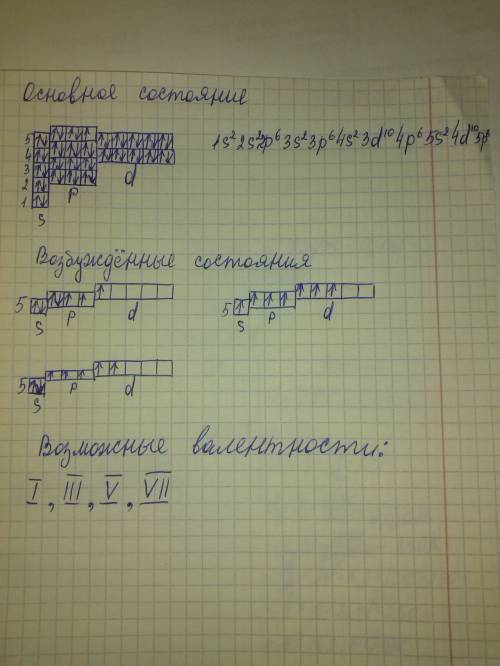 Основное состояние
5
4
3
2
1
s p d
1s²2s²2p⁶3s²3p⁶4s²3d¹⁰4p⁶5s²4d¹⁰5p⁵
Возбуждённые состояния
5 s p d
5 s p d
5 s p d
Возможные валентности:
I, III, V, VII